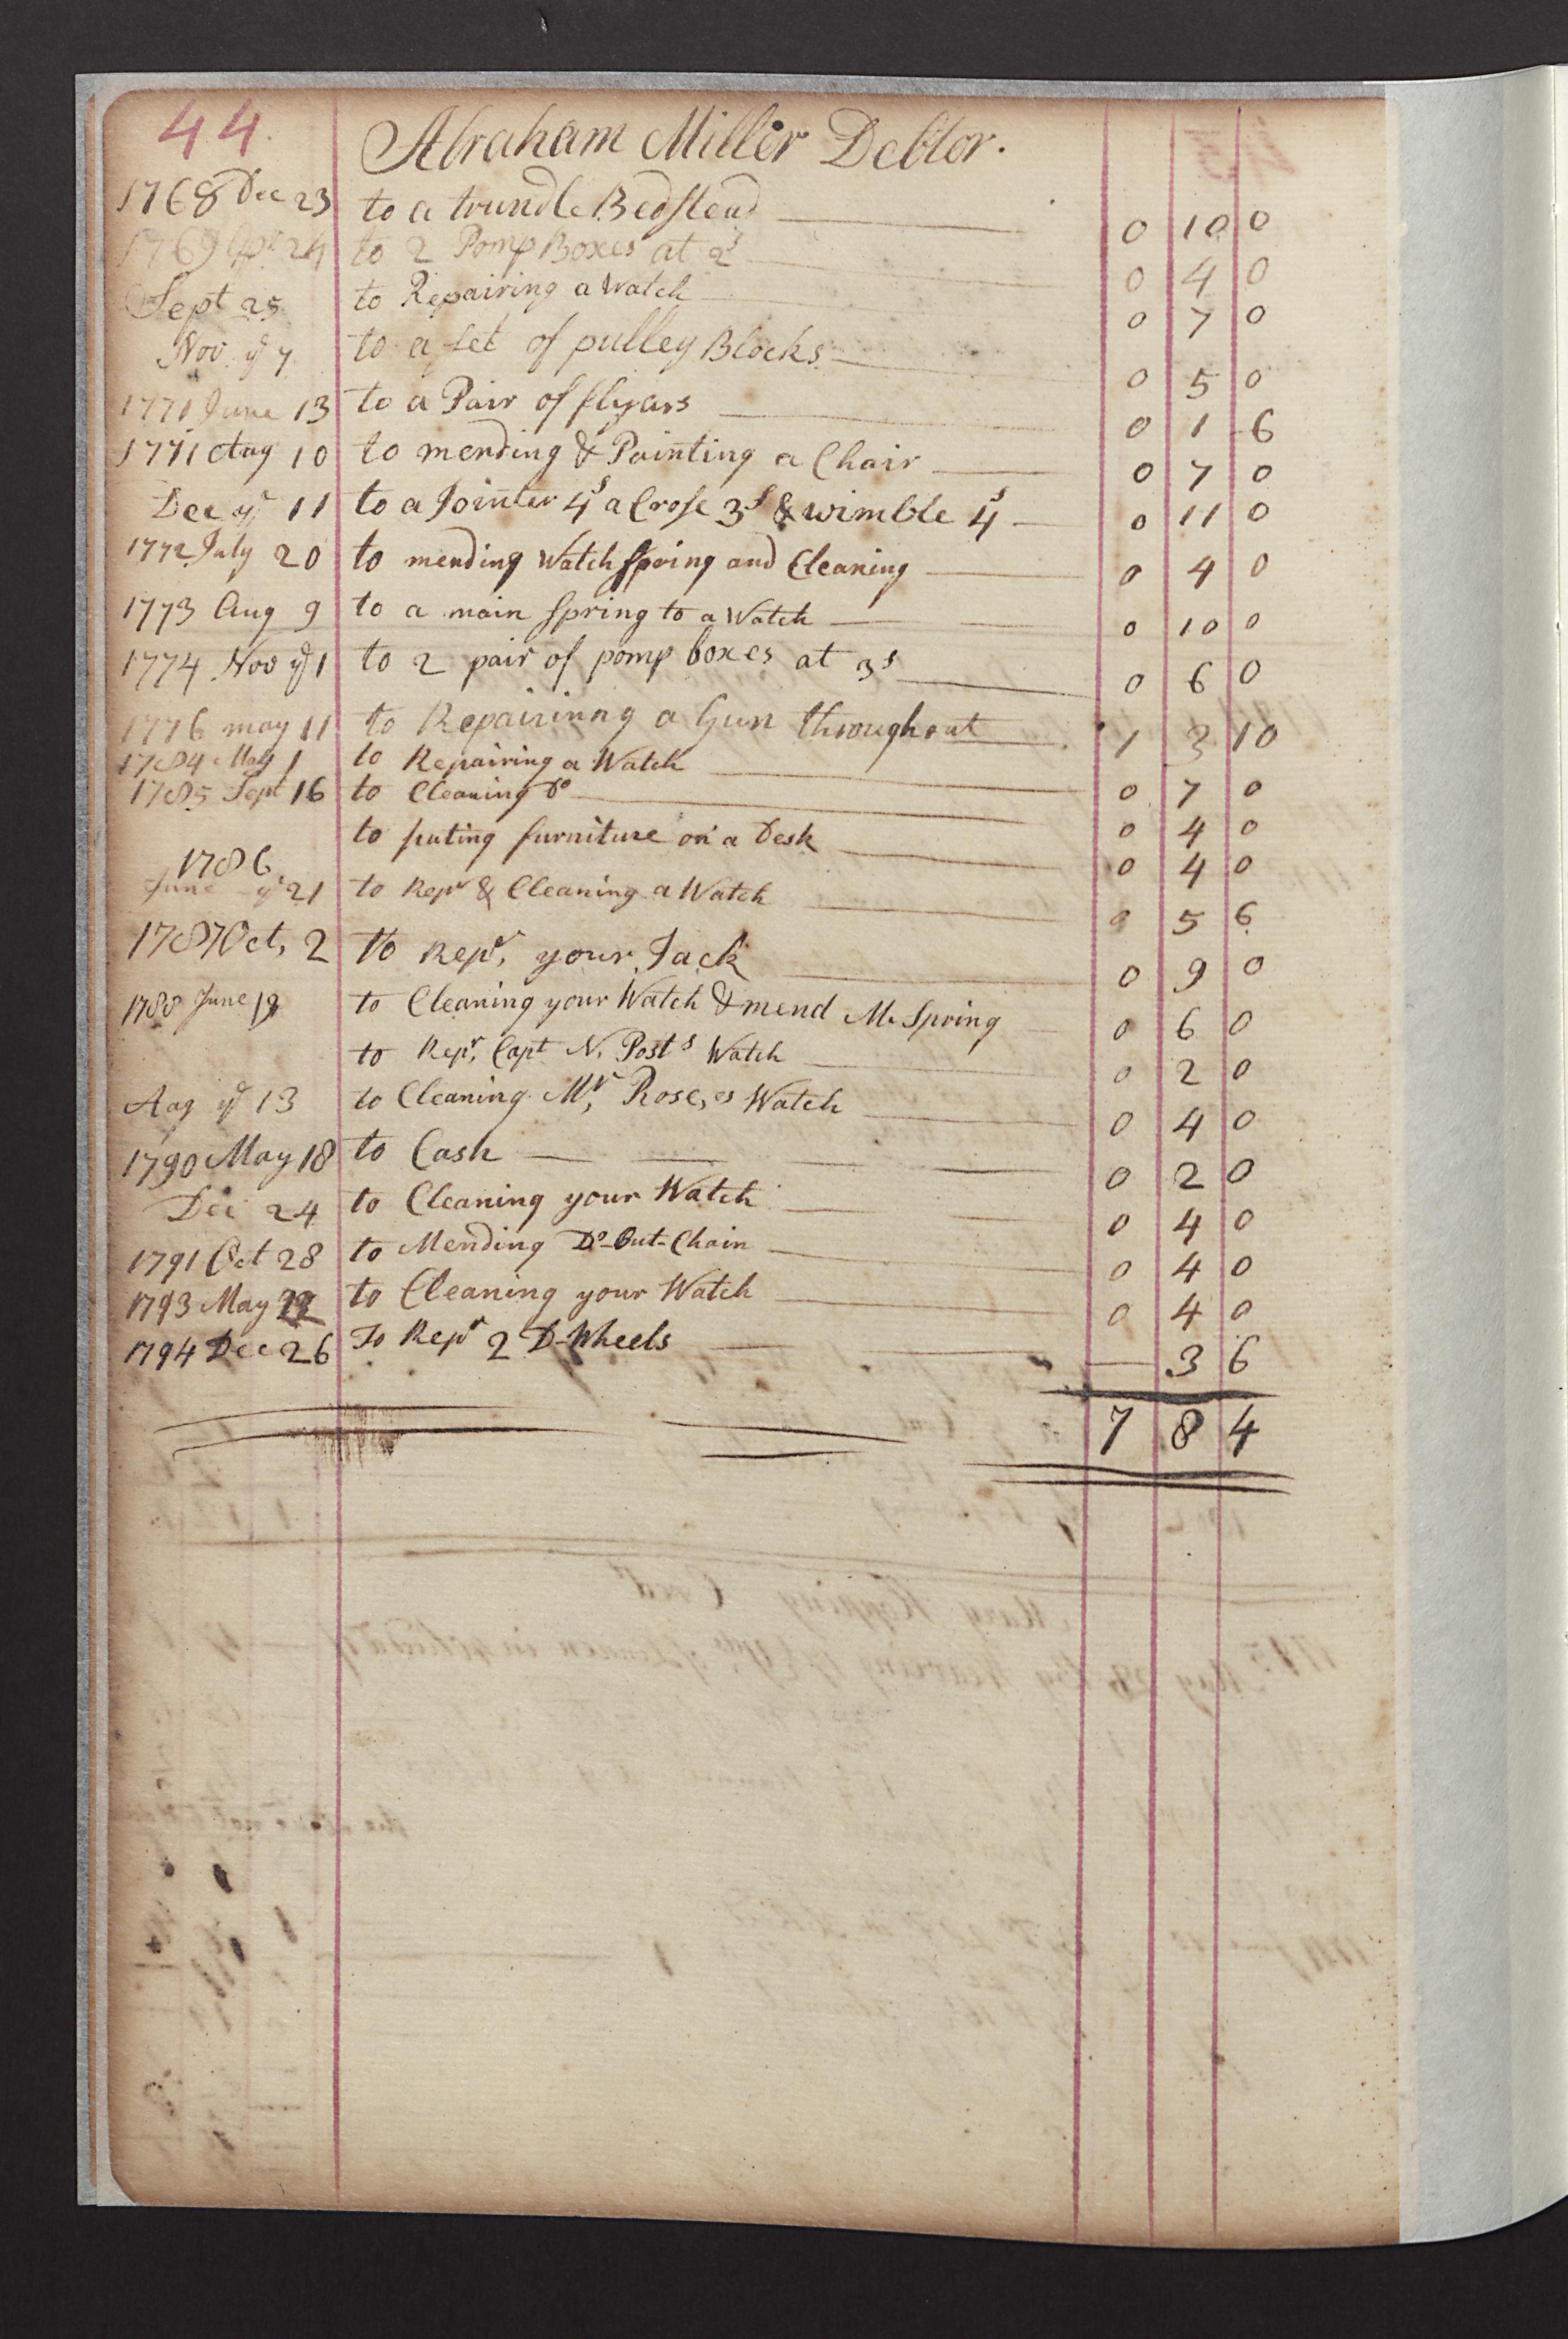 44.
Abraham Miller Debtor.
1768 Dec 23 to a trundle Bedstead 0 10 0
1769 Apr 24 to 2 Pomp Boxes at 2s 0 4 0
Sept 25 to Repairing a Watch 0 7 0
Nov ye 7 to a set of pulley Blocks 0 5 0
1771 June 13 to a Pair of flyars 0 1 6
1771 Aug 10 to mending & Painting a Chair 0 7 0
Dec ye 11 to a Jointer 4s a Crose 3s & wimble 4s 0 11 0
1772 July 20 to mending Watch Spring and Cleaning 0 4 0
1773 Aug 9 to a main Spring to a Watch 0 10 0
1774 Nov ye 1 to 2 pair of pomp boxes at 3s 0 6 0
1776 may 11 to Repairinng a Gun throughout 1 3 10
1784 May 1 to Repairing a Watch 0 7 0
1785 Sept 16 to Cleaning Do 0 4 0
to puting furniture on a Desk 0 4 0
1786
June ye 21 to Repr & Cleaning a Watch 0 5 6
1787 Oct, 2 to Repr, your Jack 0 9 0
1788 June 19 to Cleaning your Watch & mend M. Spring 0 6 0
to Repr, Capt N. Posts Watch 0 2 0
Aug ye 13 to Cleaning Mr, Rose,es Watch 0 4 0
1790 May 18 to Cash 0 2 0
Dec 24 to Cleaning your Watch 0 4 0
1791 Oct 28 to Mending Do-Out-Chain 0 4 0
1793 May to Cleaning your Watch 0 4 0
1794 Dec 26 To Repr 2 D-Wheels 3 6
7 8 4